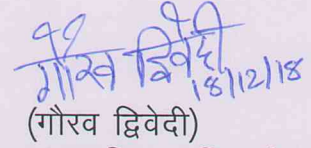 गौरव द्विवेदी
18/12/18
(गौरव द्विवेदी)